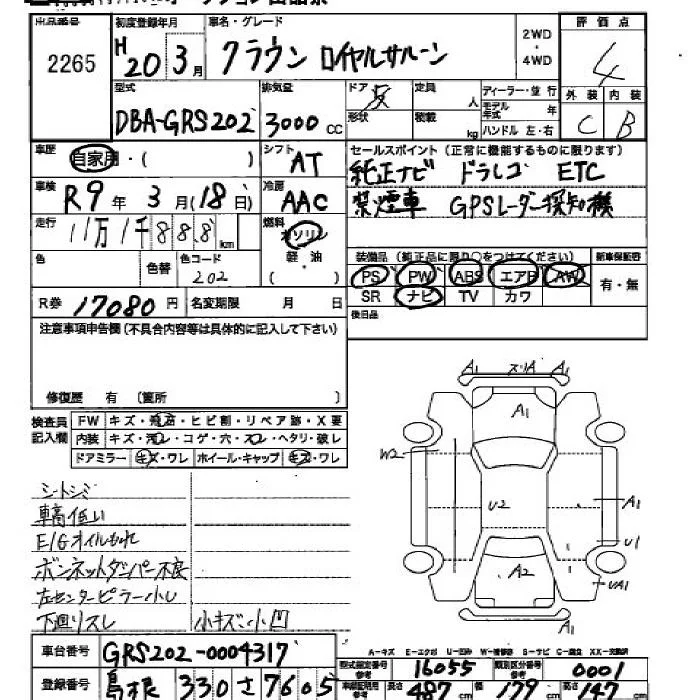 出品番号 初度登録年月 車名・グレード 2WD・4WD 評価点
2265 H20年3月 クラウン ロイヤルサルーン 4
型式 排気量 ドア 定員 人 ディーラー・並行 外装 内装
DBA-GRS202 3000cc 形状 積載 kg モデル年式 年 ハンドル 左・右 C B
車歴 自家用・( ) シフト AT セールスポイント (正常に機能するものに限ります)
純正ナビ ドラレコ ETC
車検 R9年3月(18日) 冷房 AAC 禁煙車 GPSレーダー探知機
走行 11万1千888km 燃料 ガソリン
軽・油
( )
装備品 (純正品に限り○をつけてください) 新車保証書
色 色替 色コード 202 PS PW ABS エアB AW 有・無
R券 17080円 名変期限 月 日 SR ナビ TV カワ
後日品
注意事項申告欄(不具合内容等は具体的に記入して下さい)
修復歴 有 〔箇所 〕
検査員記入欄 FW キズ・飛石・ヒビ割・リペア跡・X要
内装 キズ・汚レ・コゲ・穴・スレ・ヘタリ・破レ
ドアミラー キズ・ワレ ホイール・キャップ キズ・ワレ
A1 スリA A1
A1
W2
U2 A1
U1
A2 UA1
A1
シートシミ
車高低い
E/Gオイルもれ
ボンネットダンパー不良
左センターピラー小し
下廻リスレ 小キズ・小凹
A-キズ E-エクボ U-凹み W-補修跡 S-サビ C-腐食 XX-交換済
車台番号 GRS202-0004317 型式指定番号 参考 16055 類別区分番号 参考 0001
登録番号 島根 330 さ 7605 車両証明用 参考 長さ 487cm 幅 179cm 高さ 147